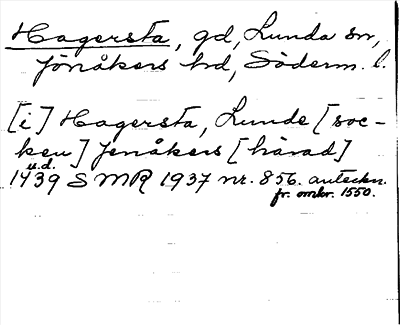 Hagersta, gd, Lunda sn,
Jönåkers hd, Söderm. l.
[i] Hagersta, Lunde [soc-
ken] Jenåkers [härad]
u.d.
1439 SMR 1937 nr. 856. anteckn.
fr. omkr. 1550.